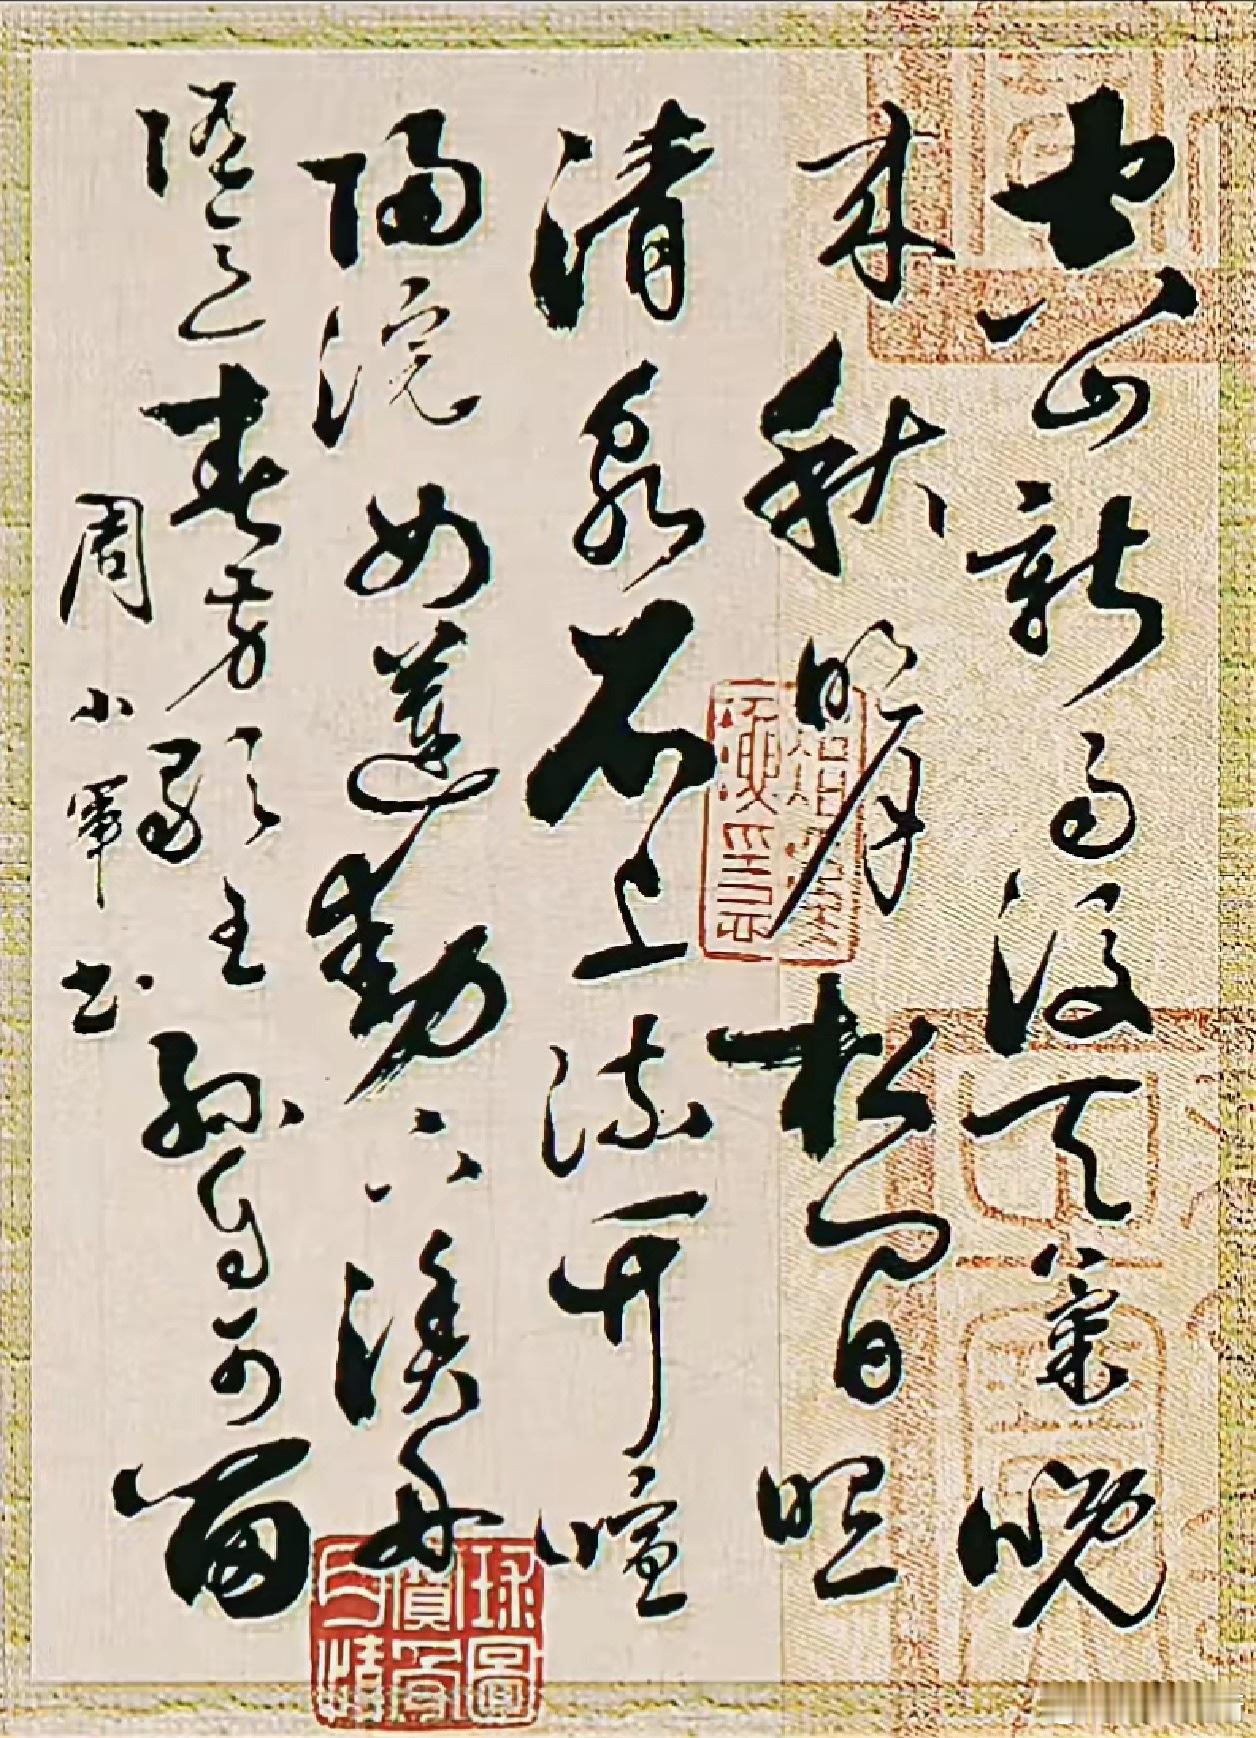 空山新雨後天氣晚
来秋明月松間照
清泉石上流竹喧
歸浣女蓮動下漁舟
随意春芳歇王孫自可留
周小軍书